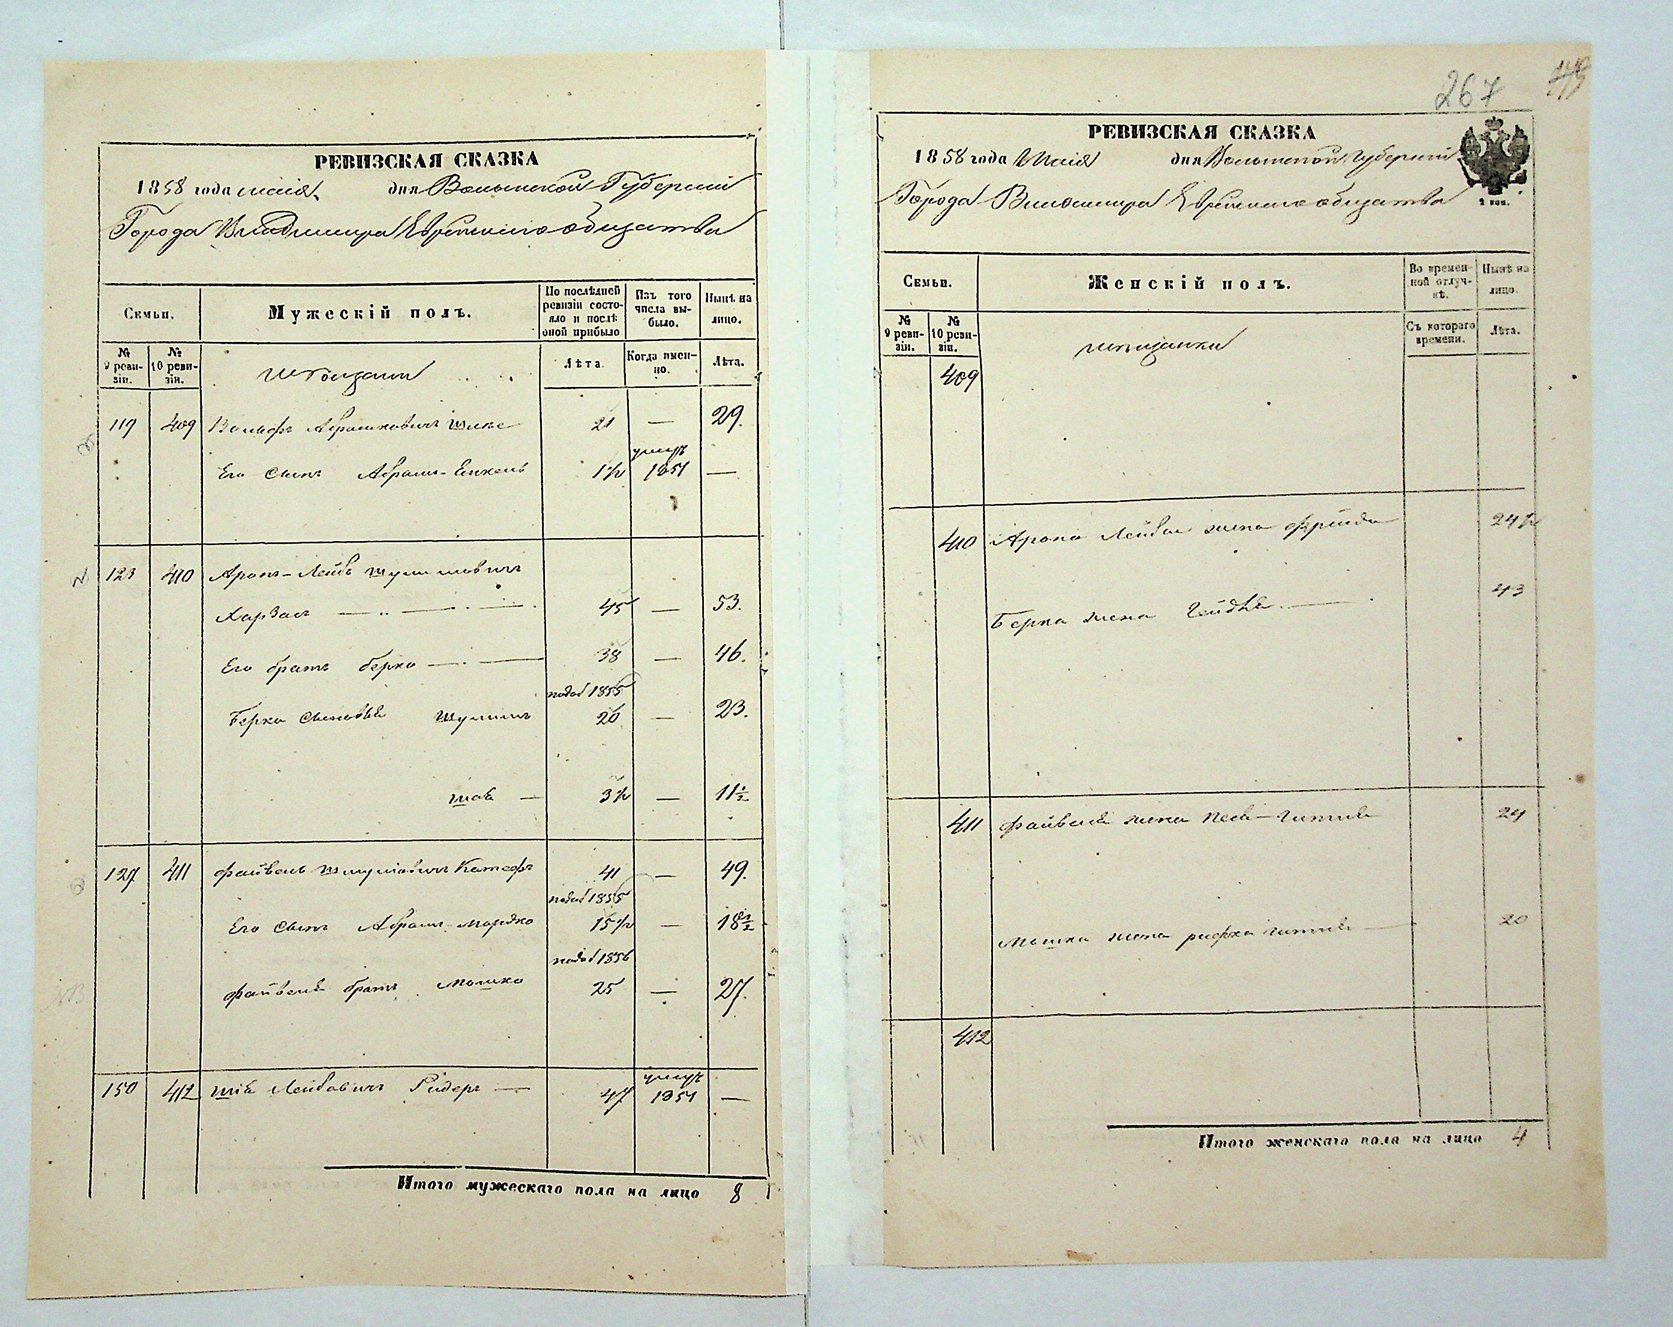 267
РЕВИЗСКАЯ СКАЗКА
1858 года маія дня Волынской Губерніи
Города Владимира Еврейскаго общества
Семьи.
Мужескій полъ.
По послѣдней ревизіи состояло и послѣ оной прибыло
Изъ того числа выбыло.
Нынѣ на лицо.
№ 9 ревизіи.
№ 10 ревизіи.
Мѣщани
Лѣта.
Когда именно.
Лѣта.
119 409 Вольфъ Абрамковичъ 21 — 29.
Его сынъ Абрамъ-Енкель 1½ умеръ 1851 —
123 410 Аронъ-Лейба Шулимовичъ
45 — 53.
Его братъ Берко — 38 — 46.
подоб 1855
Берка сыновья Шулимъ 20 — 23.
3½ — 11½
127 411 Файвель Шмулiовичъ 41 — 49.
подоб 1855
Его сынъ Абрамъ-Мордко 15½ — 18½
подоб 1856
Файвеля братъ Мошко 25 — 27.
150 412 Лейбовичъ Ридеръ — 47 умеръ 1851 —
Итого мужескаго пола на лицо 8
РЕВИЗСКАЯ СКАЗКА
1858 года маія дня Волынской Губерніи
Города Владимира Еврейскаго общества
2 коп.
Семьи.
Женскій полъ.
Во временной отлучкѣ.
Нынѣ на лицо.
№ 9 ревизіи.
№ 10 ревизіи.
Мѣщанки
Съ котораго времени.
Лѣта.
409
410 Арона Лейбы жена Фрейда 24½
Берка жена 43
411 Файвеля жена Песя-Гитля 24
Мошка жена Рифка Гитля — 20
412
Итого женскаго пола на лицо 4